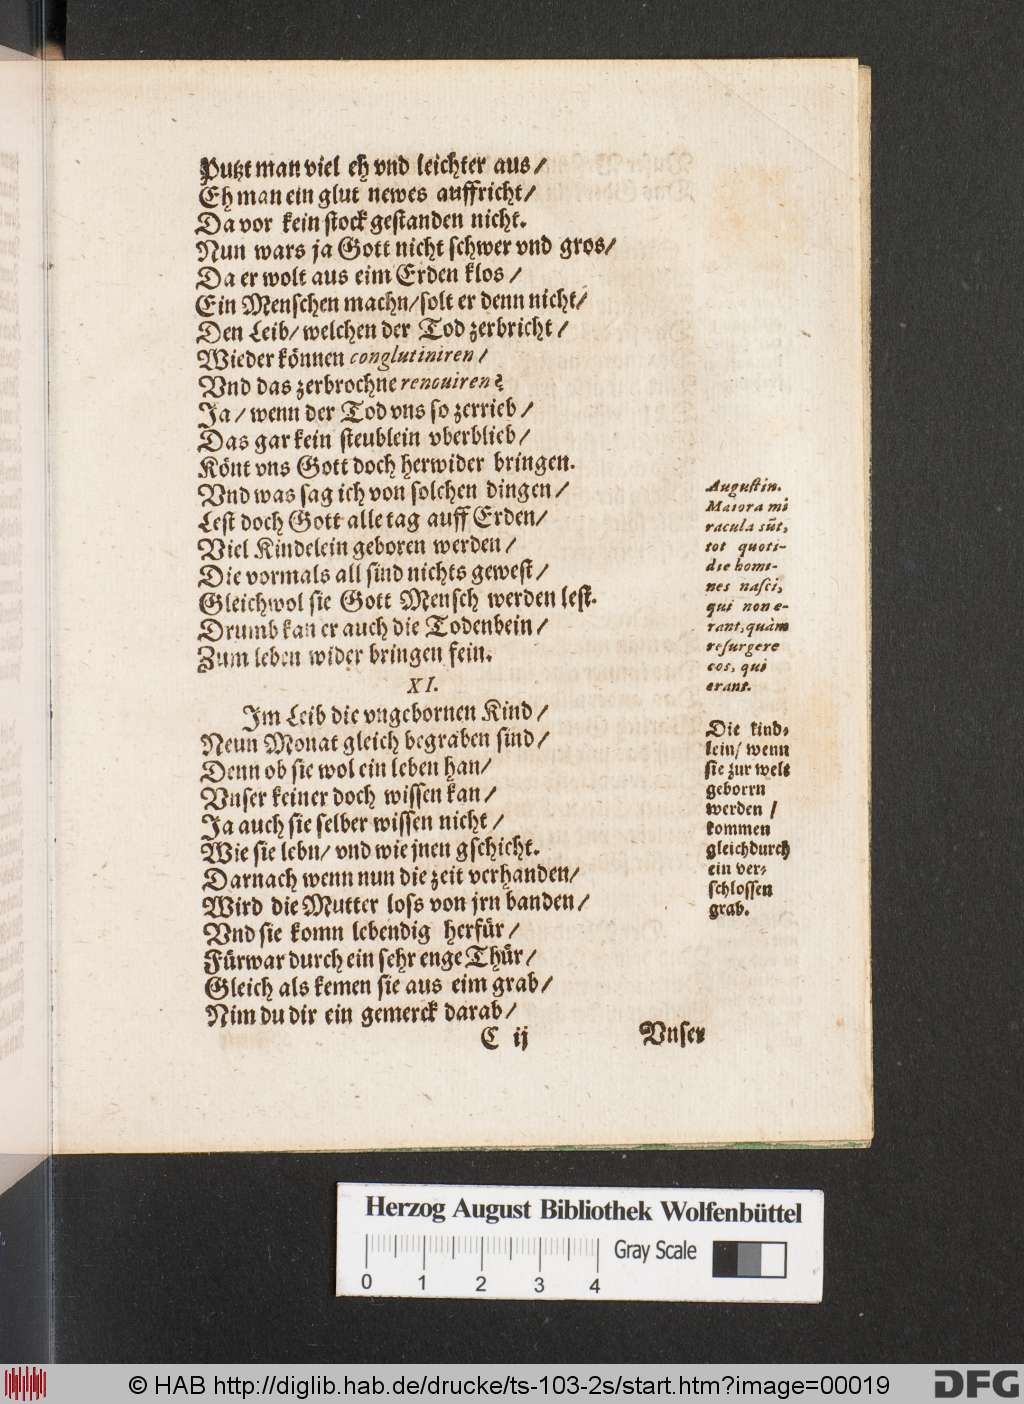 Putzt man viel eh vnd leichter aus /
Eh man ein glut newes auffricht /
Da vor kein stock gestanden nicht.
Nun wars ja Gott nicht schwer vnd gros /
Da er wolt aus eim Erden klos /
Ein Menschen machn / solt er denn nicht /
Den Leib / welchen der Tod zerbricht /
Wieder können conglutiniren /
Vnd das zerbrochne renouiren?
Ja / wenn der Tod vns so zerrieb /
Das gar kein steublein vberblieb /
Könt vns Gott doch herwider bringen.
Vnd was sag ich von solchen dingen /
Lest doch Gott alle tag auff Erden /
Viel Kindelein geboren werden /
Die vormals all sind nichts gewest /
Gleichwol sie Gott Mensch werden lest.
Drumb kan er auch die Todenbein /
Zum leben wider bringen fein.
XI.
Im Leib die vngebornen Kind /
Neun Monat gleich begraben sind /
Denn ob sie wol ein leben han /
Vnser keiner doch wissen kan /
Ja auch sie selber wissen nicht /
Wie sie lebn / vnd wie jnen gschicht.
Darnach wenn nun die zeit verhanden /
Wird die Mutter loss von jrn banden /
Vnd sie komn lebendig herfür /
Fürwar durch ein sehr enge Thür /
Gleich als kemen sie aus eim grab /
Nim du dir ein gemerck darab /
C ij
Vnser
Augustin.
Maiora mi
racula sūt,
tot quoti-
die homi-
nes nasci,
qui non e-
rant, quàm
resurgere
eos, qui
erant.
Die kind-
lein / wenn
sie zur welt
geborrn
werden /
kommen
gleich durch
ein ver-
schlossen
grab.
Herzog August Bibliothek Wolfenbüttel
0 1 2 3 4
Gray Scale
© HAB http://diglib.hab.de/drucke/ts-103-2s/start.htm?image=00019
DFG